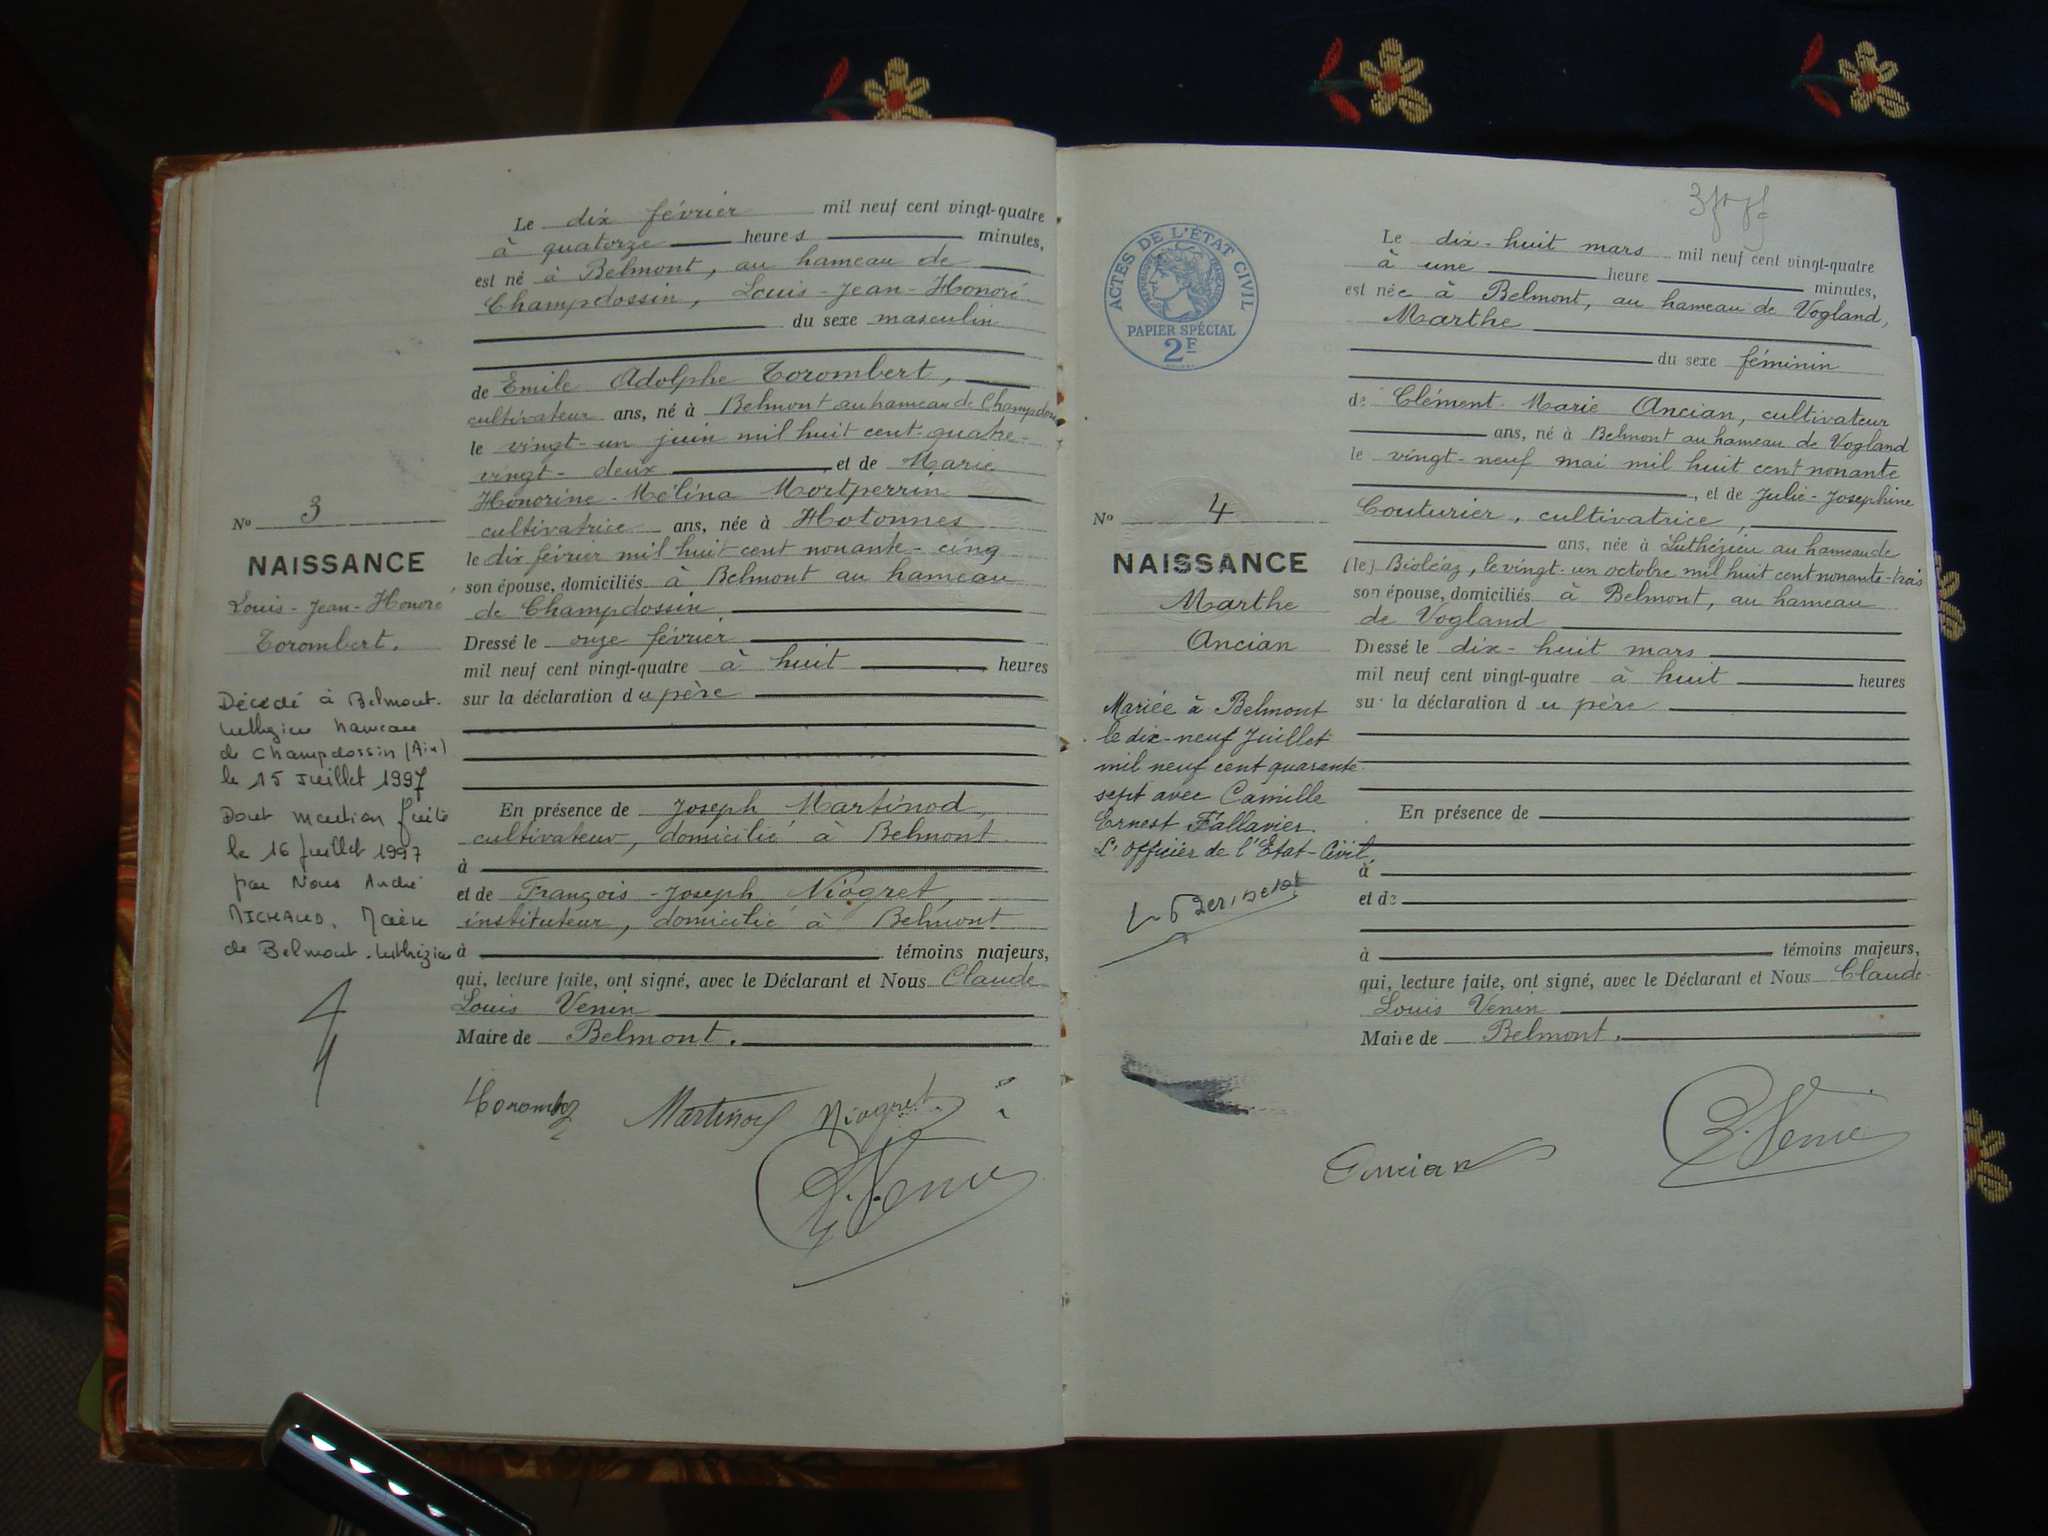 Le dix février mil neuf cent vingt-quatre
à quatorze heures minutes,
est né à Belmont, au hameau de
Champdossin, Louis-Jean-Honoré
du sexe masculin
de Emile Adolphe Torombert,
cultivateur ans, né à Belmont au hameau de Champdossin
le vingt-un juin mil huit cent-quatre-
vingt-deux et de Marie
Honorine-Mélina Mortperrin
cultivatrice ans, née à Hotonnes
le dix février mil huit cent nonante-cinq
son épouse, domiciliés à Belmont au hameau
de Champdossin
Dressé le onze février
mil neuf cent vingt-quatre à huit heures
sur la déclaration du père
En présence de Joseph Martinod,
cultivateur, domicilié à Belmont
à
et de François-Joseph Niogret,
instituteur, domicilié à Belmont
à témoins majeurs,
qui, lecture faite, ont signé, avec le Déclarant et Nous Claude
Louis Venin
Maire de Belmont.
No 3
NAISSANCE
Louis-Jean-Honoré
Torombert.
Décédé à Belmont-
Luthézieu hameau
de Champdossin (Ain)
le 15 Juillet 1997
Dont mention faite
le 16 juillet 1997
par Nous André
MICHAUD, Maire
de Belmont-Luthézieu
Torombert Martinod Niogret
Venin
ACTES DE L'ÉTAT CIVIL
RÉPUBLIQUE FRANÇAISE
PAPIER SPÉCIAL
2F
Le dix-huit mars mil neuf cent vingt-quatre
à une heure minutes,
est née à Belmont, au hameau de Vogland,
Marthe
du sexe féminin
de Clément-Marie Ancian, cultivateur
ans, né à Belmont au hameau de Vogland
le vingt-neuf mai mil huit cent nonante
, et de Julie-Josephine
Couturier, cultivatrice,
ans, née à Luthézieu au hameau de
(le) Bioléaz, le vingt-un octobre mil huit cent nonante-trois
son épouse, domiciliés à Belmont, au hameau
de Vogland
Dressé le dix-huit mars
mil neuf cent vingt-quatre à huit heures
sur la déclaration du père
En présence de
à
et de
à témoins majeurs,
qui, lecture faite, ont signé, avec le Déclarant et Nous Claude
Louis Venin
Maire de Belmont.
No 4
NAISSANCE
Marthe
Ancian
Mariée à Belmont
le dix-neuf Juillet
mil neuf cent quarante
sept avec Camille
Ernest Fallavier.
L'officier de l'Etat-Civil,
Ancian Venin